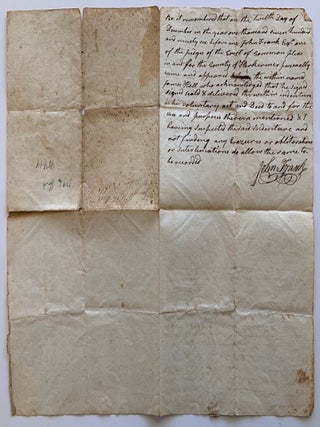 Be it remembered that on the twelfth Day of
December in the year one thousand seven hundred
and ninety six before me John Frank Esqr. one
of the judges of the Court of Common pleas
in and for the County of personally
came and appeared the within named
James Hall who acknowledged that he signed
signed sealed & delivered the within indenture
as his voluntary act and Deed to and for the
use and purposes therein mentioned & I
having Inspected the said Indenture and
not finding any Erazures or obliterations
or Interlineations do allow the same to
be recorded
John Frank